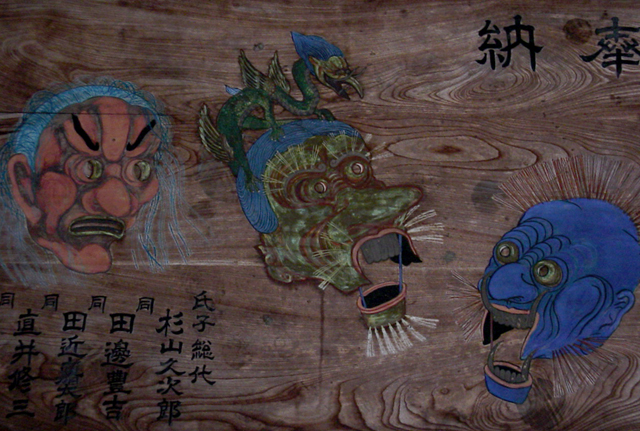 奉納
氏子総代
杉山久次郎
同
田邊豊吉
同
田近
郎
同
直井修三
同